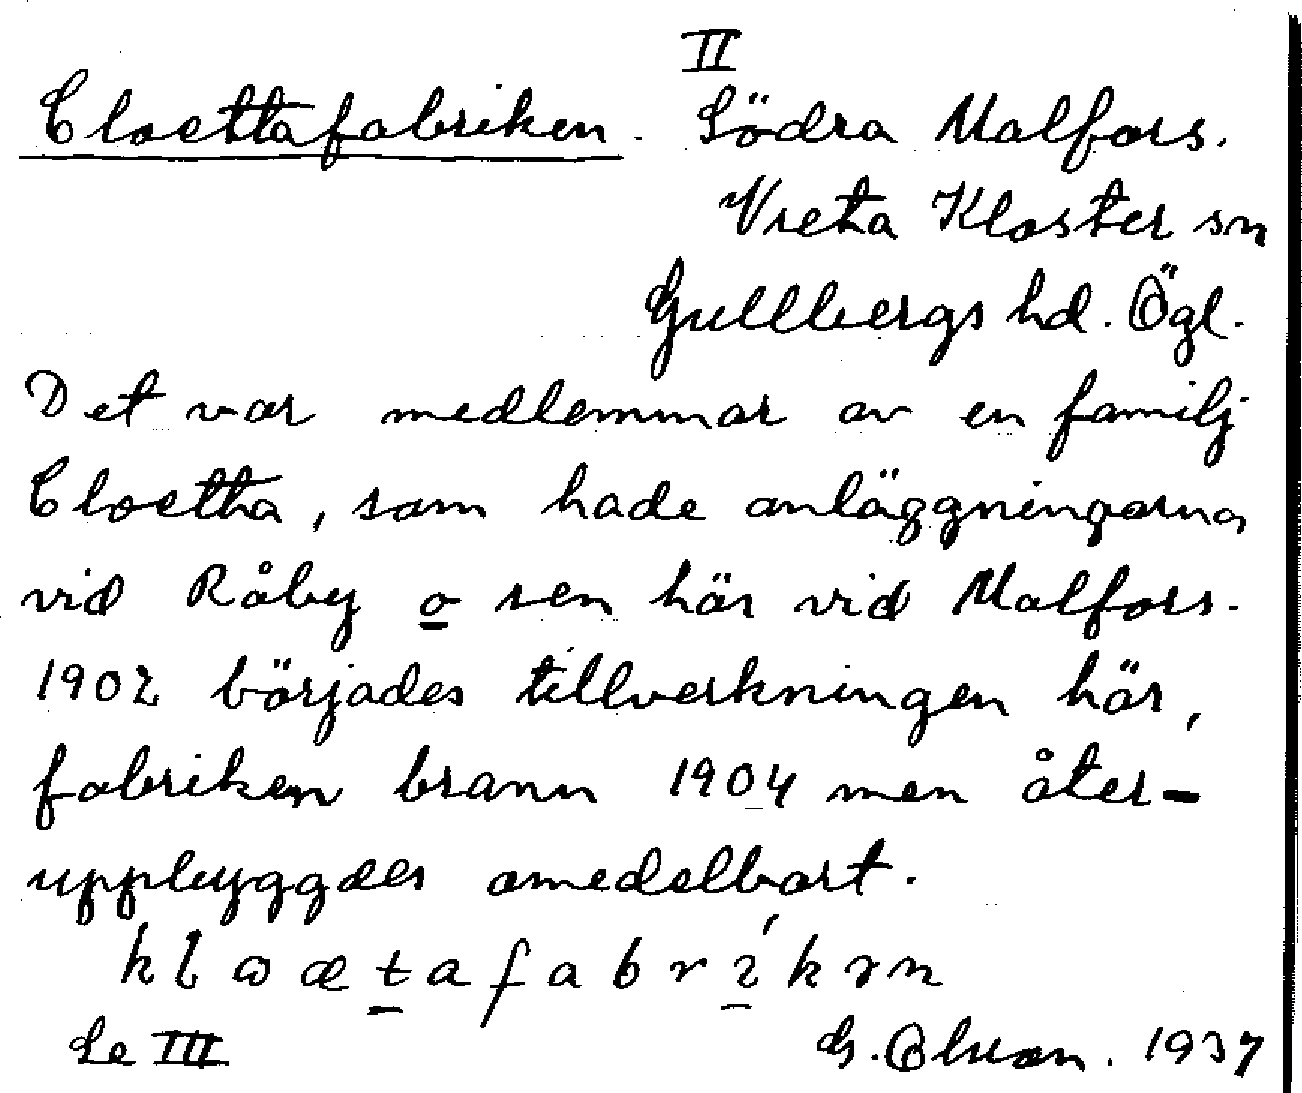 II
Cloettafabriken. Södra Malfors.
Vreta Kloster sn
Gullbergs hd. Ögl.
Det var medlemmar av en familj
Cloetta, som hade anläggningarna
vid Råby o sen här vid Malfors.
1902 börjades tillverkningen här,
fabriken brann 1904 men åter-
uppbyggdes omedelbart.
Se III
1937